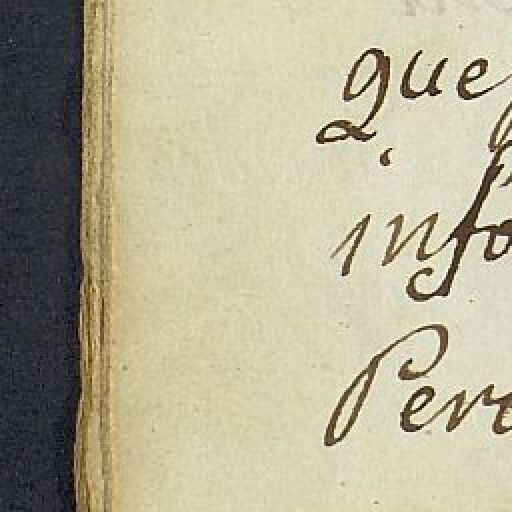 que
info
Pero